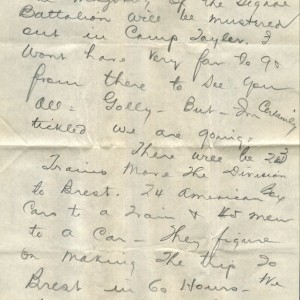 of the Signal
Battalion will be mustered
out in Camp Taylor. I
Wont have very far to go
from there to see you
all = Golly - But - I'm Certainly
tickled we are going.
There will be
Trains Move The Division
to Brest. 24 American Box
Cars to a Train & 45 men
to a Car - They figure
on making The trip To
Brest in 60 Hours - We